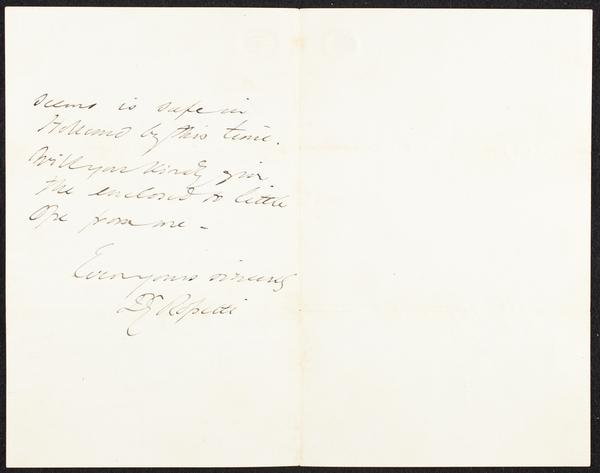 seems is safe in
Holland by this time.
Will you kindly give
the enclosed to little
from me –
Ever yours sincerely
DG Rossetti